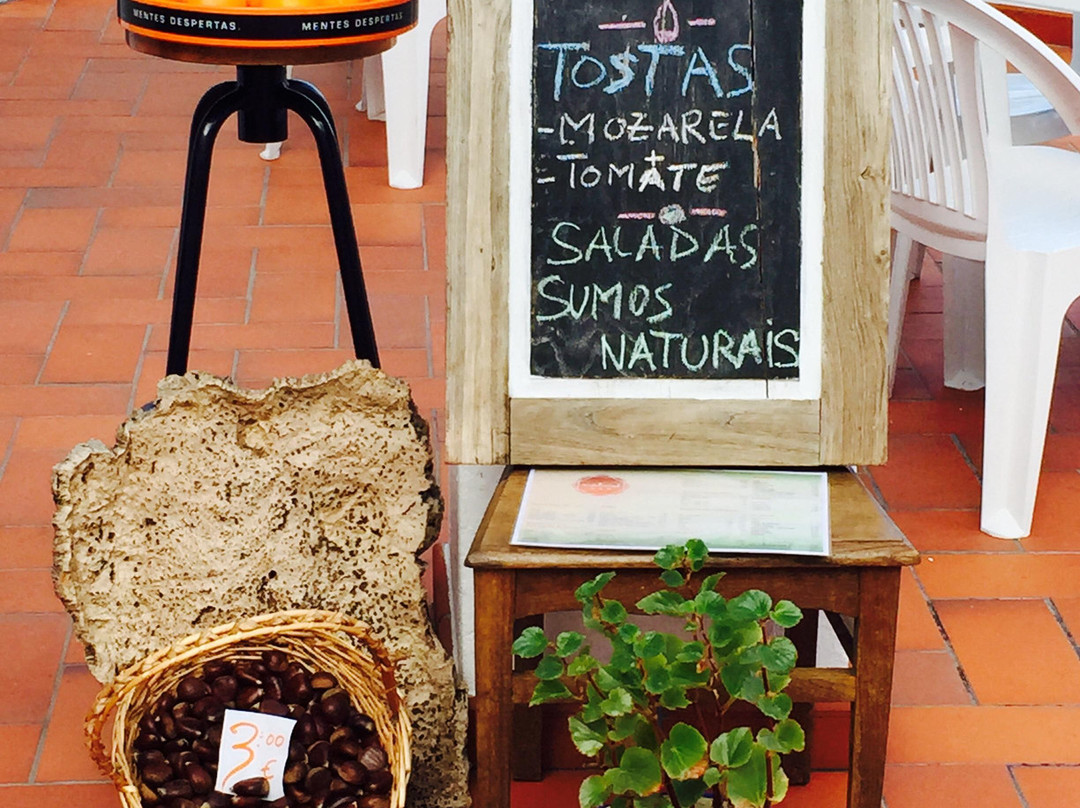 MENTES DESPERTAS. MENTES DESPERTAS
TOSTAS
-MOZARELA
-TOMATE
SALADAS
SUMOS
NATURAIS
3.00